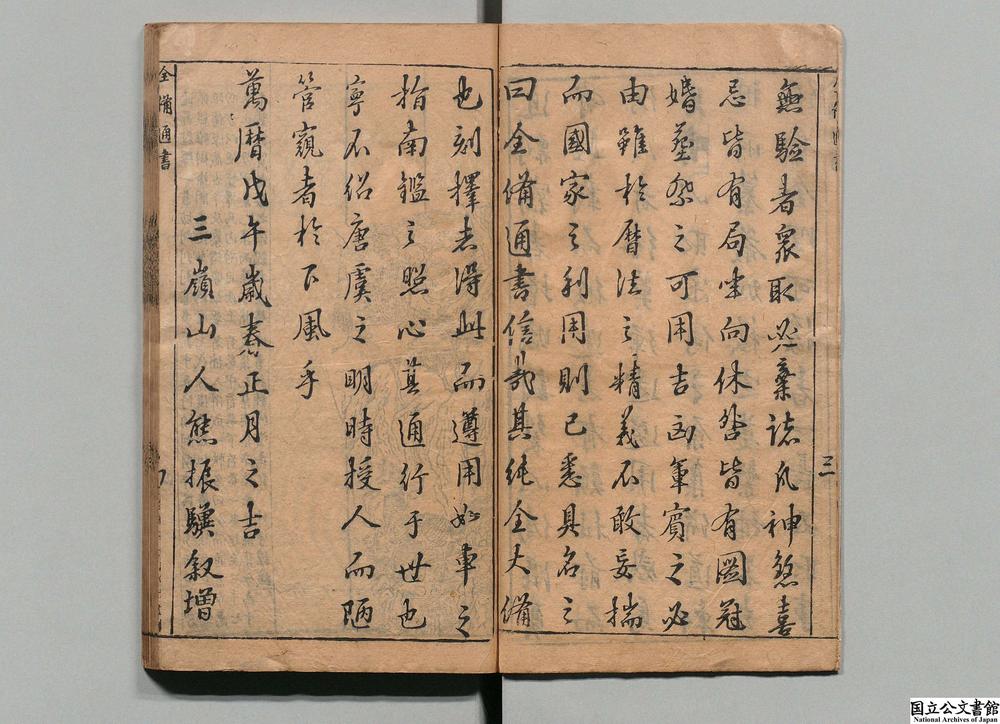 無驗者眾取必棄諸凡神煞喜
忌皆有局坐向休咎皆有圖冠
婚葬祭之可用吉凶軍賓之必
由雖於曆法之精義不敢妄揣
而國家之利用則已悉具名之
曰全俻通書信哉其純全大俻
三
也刻擇者得此而遵用如車之
指南鑑之照心其通行于世也
寧不侶唐虞之明時授人而陋
管窺者於下風乎
萬曆戊午歲春正月之吉
三嶺山人熊振驥叙增
全俻通書
国立公文書館
National Archives of Japan